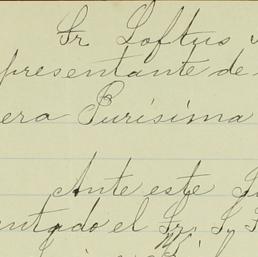 Sr Loftus
presentante de
era Purísima
Ante este
entado el Sr. S.